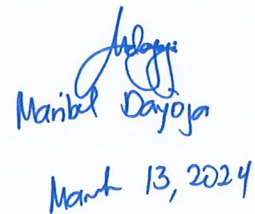 Maribel Dayoja
March 13, 2024